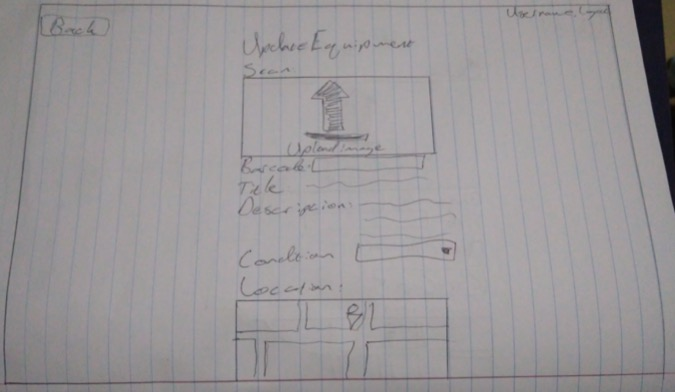 Back
Username, Logout
Update Equipment
Scan:
Upload image
Barcode:
Title
Description:
Condition
Location: